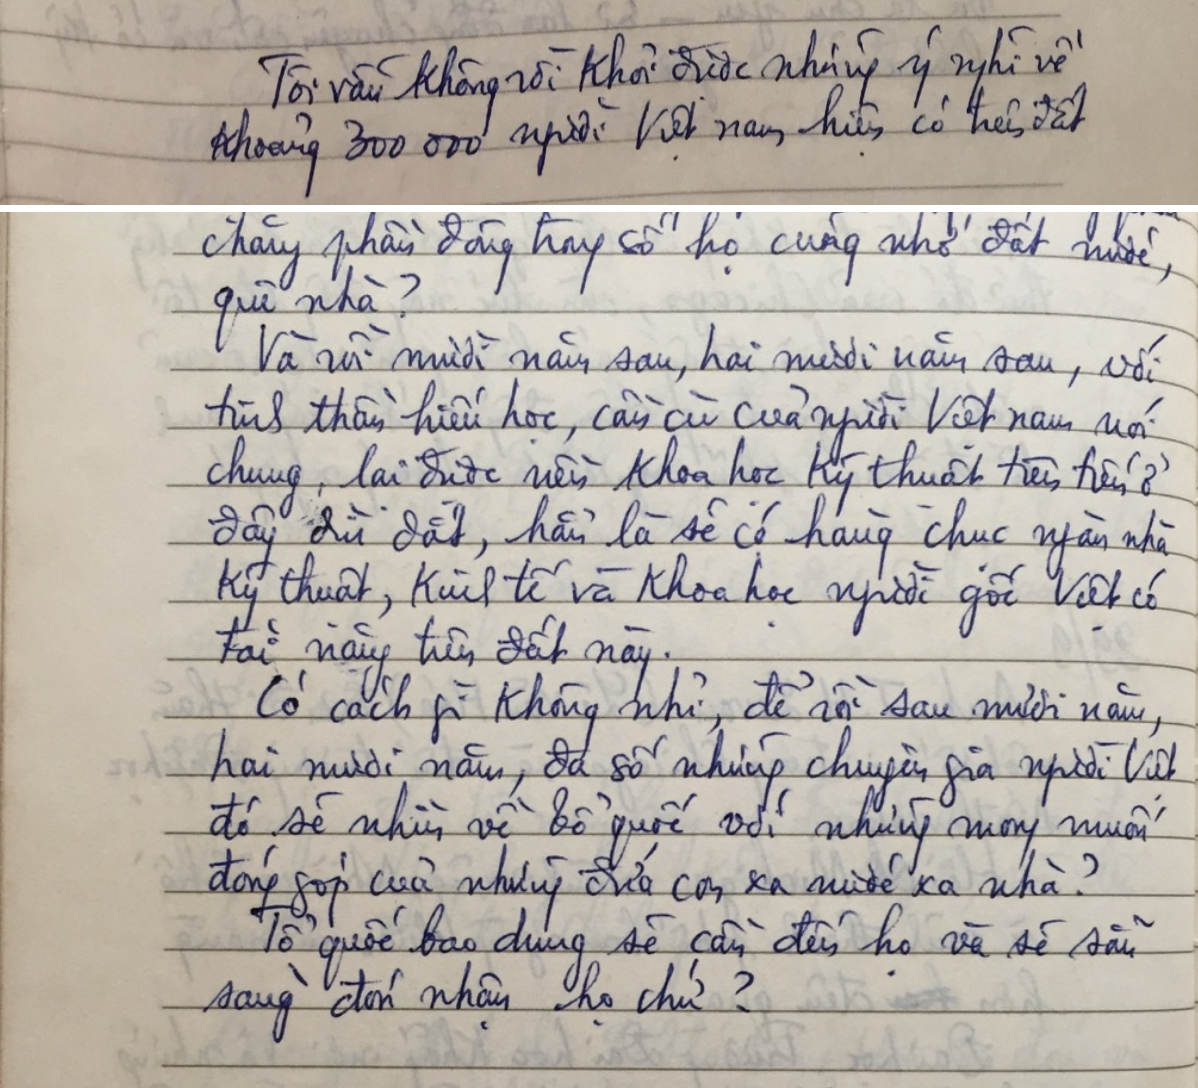 Tôi vẫn không rời khỏi được những ý nghĩ về
khoảng 300 000 người Việt nam hiện có trên đất
chăng phần đông trong số họ cũng nhớ đất nước,
quê nhà?
Và rồi mười năm sau, hai mươi năm sau, với
tinh thần hiếu học, cần cù của người Việt nam nói
chung, lại được nền khoa học kỹ thuật tiên tiến ở
đây dìu dắt, hẳn là sẽ có hàng chục ngàn nhà
kỹ thuật, kinh tế và khoa học người gốc Việt có
tài năng trên đất này.
Có cách gì không nhỉ, để rồi sau mười năm,
hai mươi năm, đa số những chuyên gia người Việt
đó sẽ nhìn về tổ quốc với những mong muốn
đóng góp của những đứa con xa nước xa nhà?
Tổ quốc bao dung sẽ cần đến họ và sẽ sẵn
sàng đón nhận họ chứ?